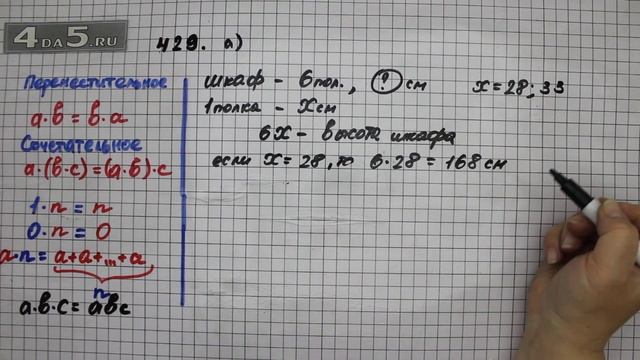 4DA5.RU
429. а)
Переместительное
a·b = b·a
Сочетательное
a·(b·c)=(a·b)·c
1·n = n
0·n = 0
a·n = a+a+...+a
n
a·b·c = abc
шкаф - 6 пол., ? см
x = 28; 33
1 полка - x см
6x - высота шкафа
если x = 28, то 6·28 = 168 см